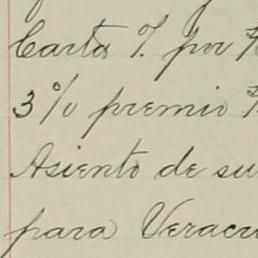 Carta %. por
3% premio
Asiento de su
para Veracru